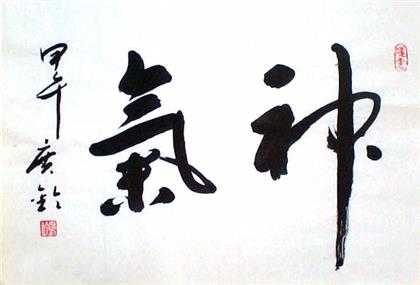 神氣
甲午廣